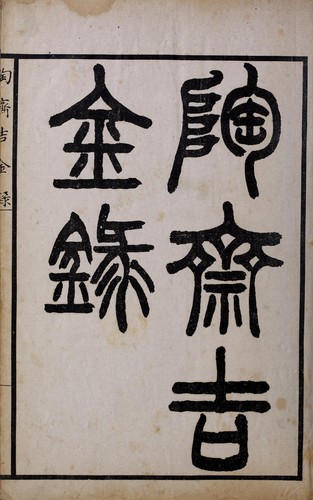 陶齋吉
金錄
陶齋吉金錄